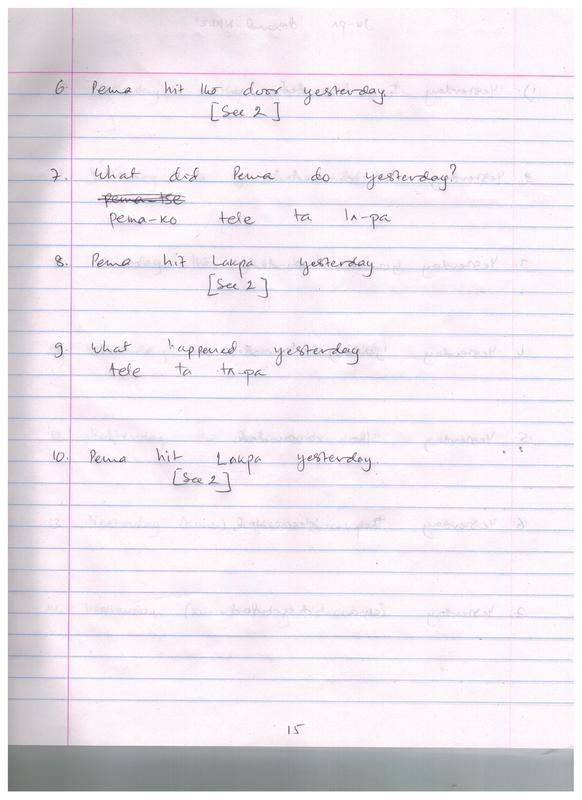 6. Pema hit the door yesterday
[See 2]
7. What did Pema do yesterday?
pema-tse
pema-ko tele ta lʌ-pa
8. Pema hit Lakpa yesterday
[See 2]
9. What happened yesterday
tele ta tʌ-pa
10. Pema hit Lakpa yesterday
[See 2]
15